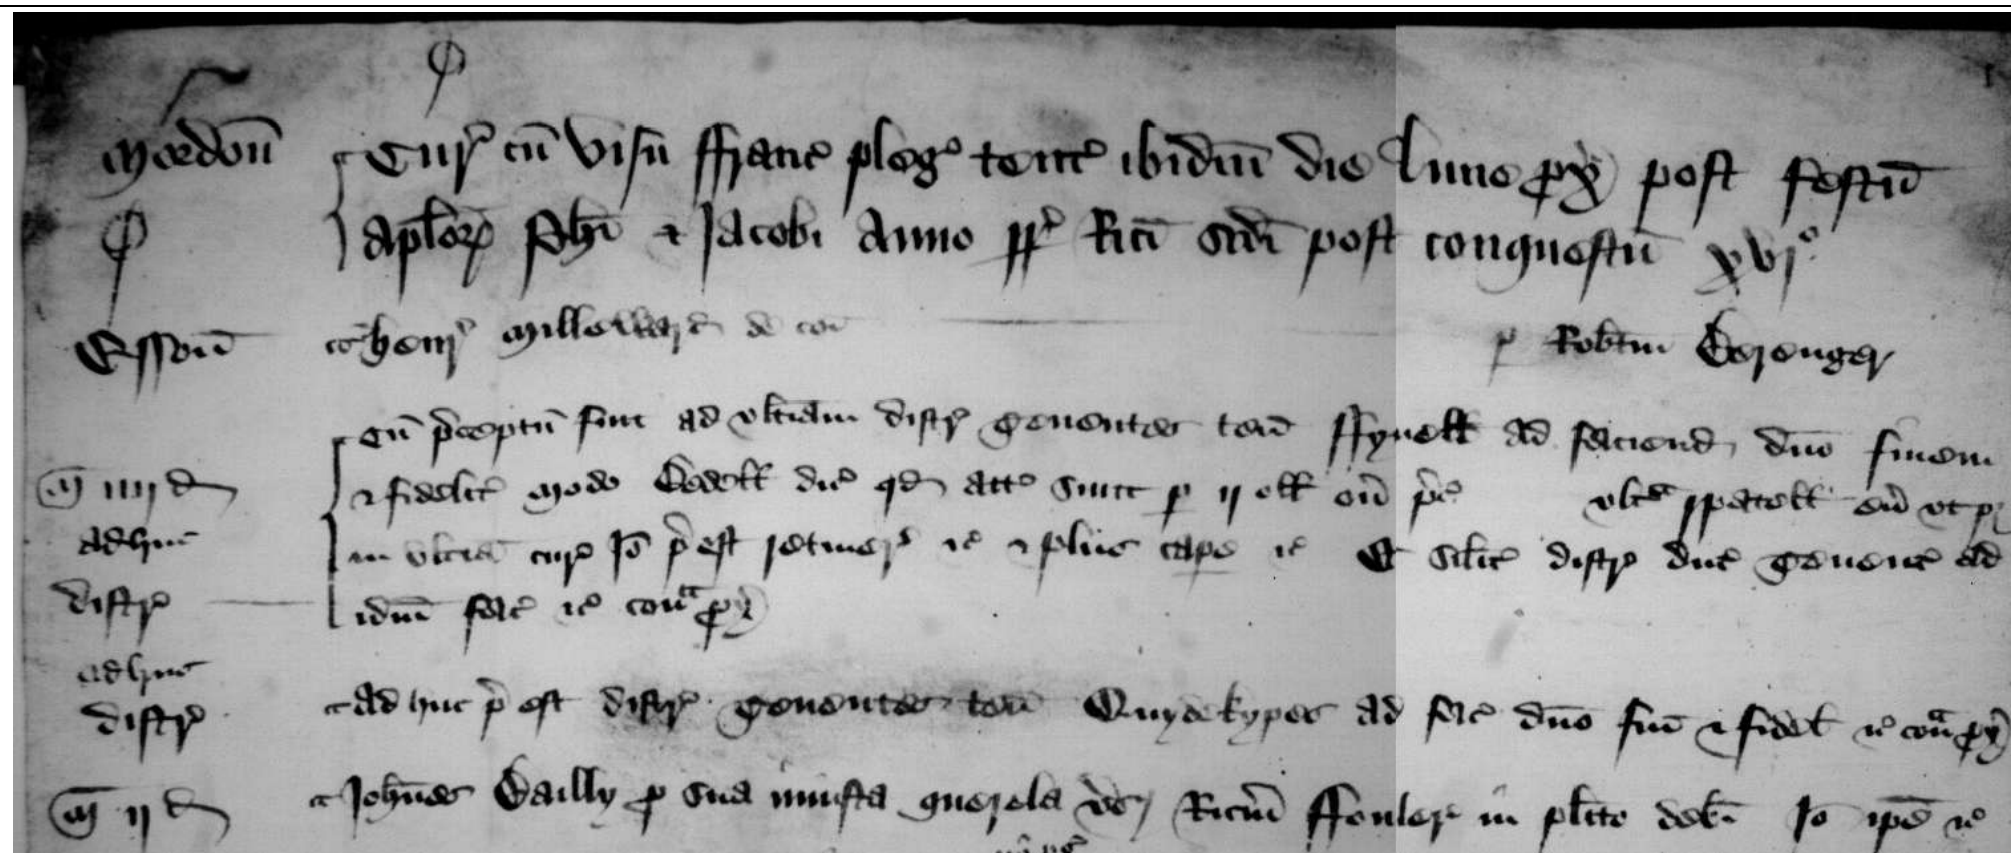 Mordon Cur cu visu ffranc pleg tent ibidm die lune px post festu
aplor Phi & Jacobi Anno rr Rici scdi post conquestu xvj°
Esson henr Milleward de coi p Robtm Berenger
Cu pceptu fuit ad vltiam distr tenentes ten ffynell ad faciend dno finem
m iiij d & fidelit modo Bedell dic qd att sunt p ij oll
adhuc in vltia cur Io p est retiner &c & plus cape &c Et silit distr dict tenent ad
distr idm fac &c cont px
adhuc
distr Ad huc p est distr tenentes ten Quydekypes ad fac dno fin & fidel &c cont px
m ij d Johnes Bailly p sua iniusta querela vs Ricm ffouler in plito debi Io ipe &c